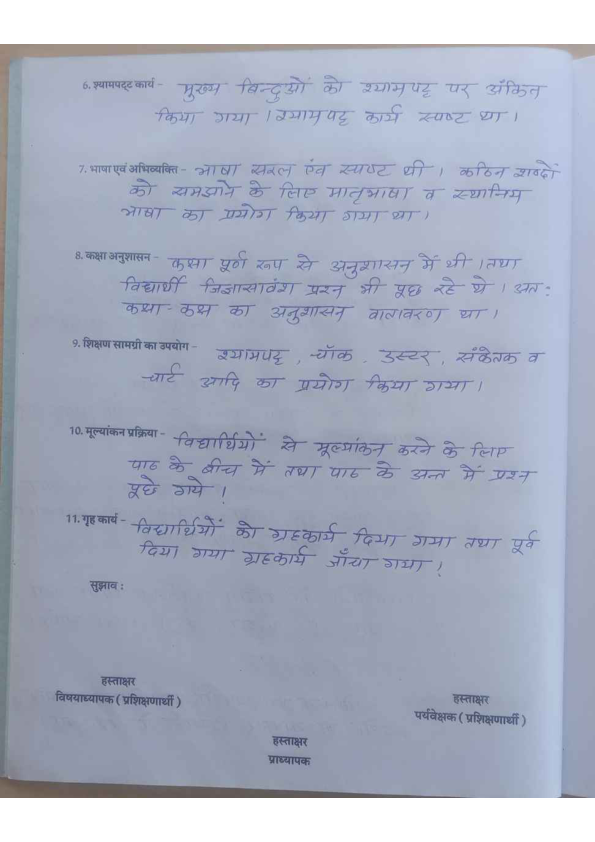 6. श्यामपट्ट कार्य - मुख्य बिन्दुओं को श्यामपट्ट पर अंकित
किया गया । श्यामपट्ट कार्य स्पष्ट था ।
7. भाषा एवं अभिव्यक्ति - भाषा सरल एंव स्पष्ट थी । कठिन शब्दों
को समझाने के लिए मातृभाषा व स्थानिय
भाषा का प्रयोग किया गया था ।
8. कक्षा अनुशासन - कक्षा पूर्ण रूप से अनुशासन में थी । तथा
विद्यार्थी जिज्ञासावंश प्रश्न भी पूछ रहे थे । अत:
कक्षा-कक्ष का अनुशासन वातावरण था ।
9. शिक्षण सामग्री का उपयोग - श्यामपट्ट, चॉक, डस्टर, संकेतक व
चार्ट आदि का प्रयोग किया गया ।
10. मूल्यांकन प्रक्रिया - विद्यार्थियों से मूल्यांकन करने के लिए
पाठ के बीच में तथा पाठ के अन्त में प्रश्न
पूछे गये !
11. गृह कार्य - विद्यार्थियों को ग्रहकार्य दिया गया तथा पूर्व
दिया गया ग्रहकार्य जाँचा गया !
सुझाव :
हस्ताक्षर
विषयाध्यापक ( प्रशिक्षणार्थी )
हस्ताक्षर
पर्यवेक्षक ( प्रशिक्षणार्थी )
हस्ताक्षर
प्राध्यापक